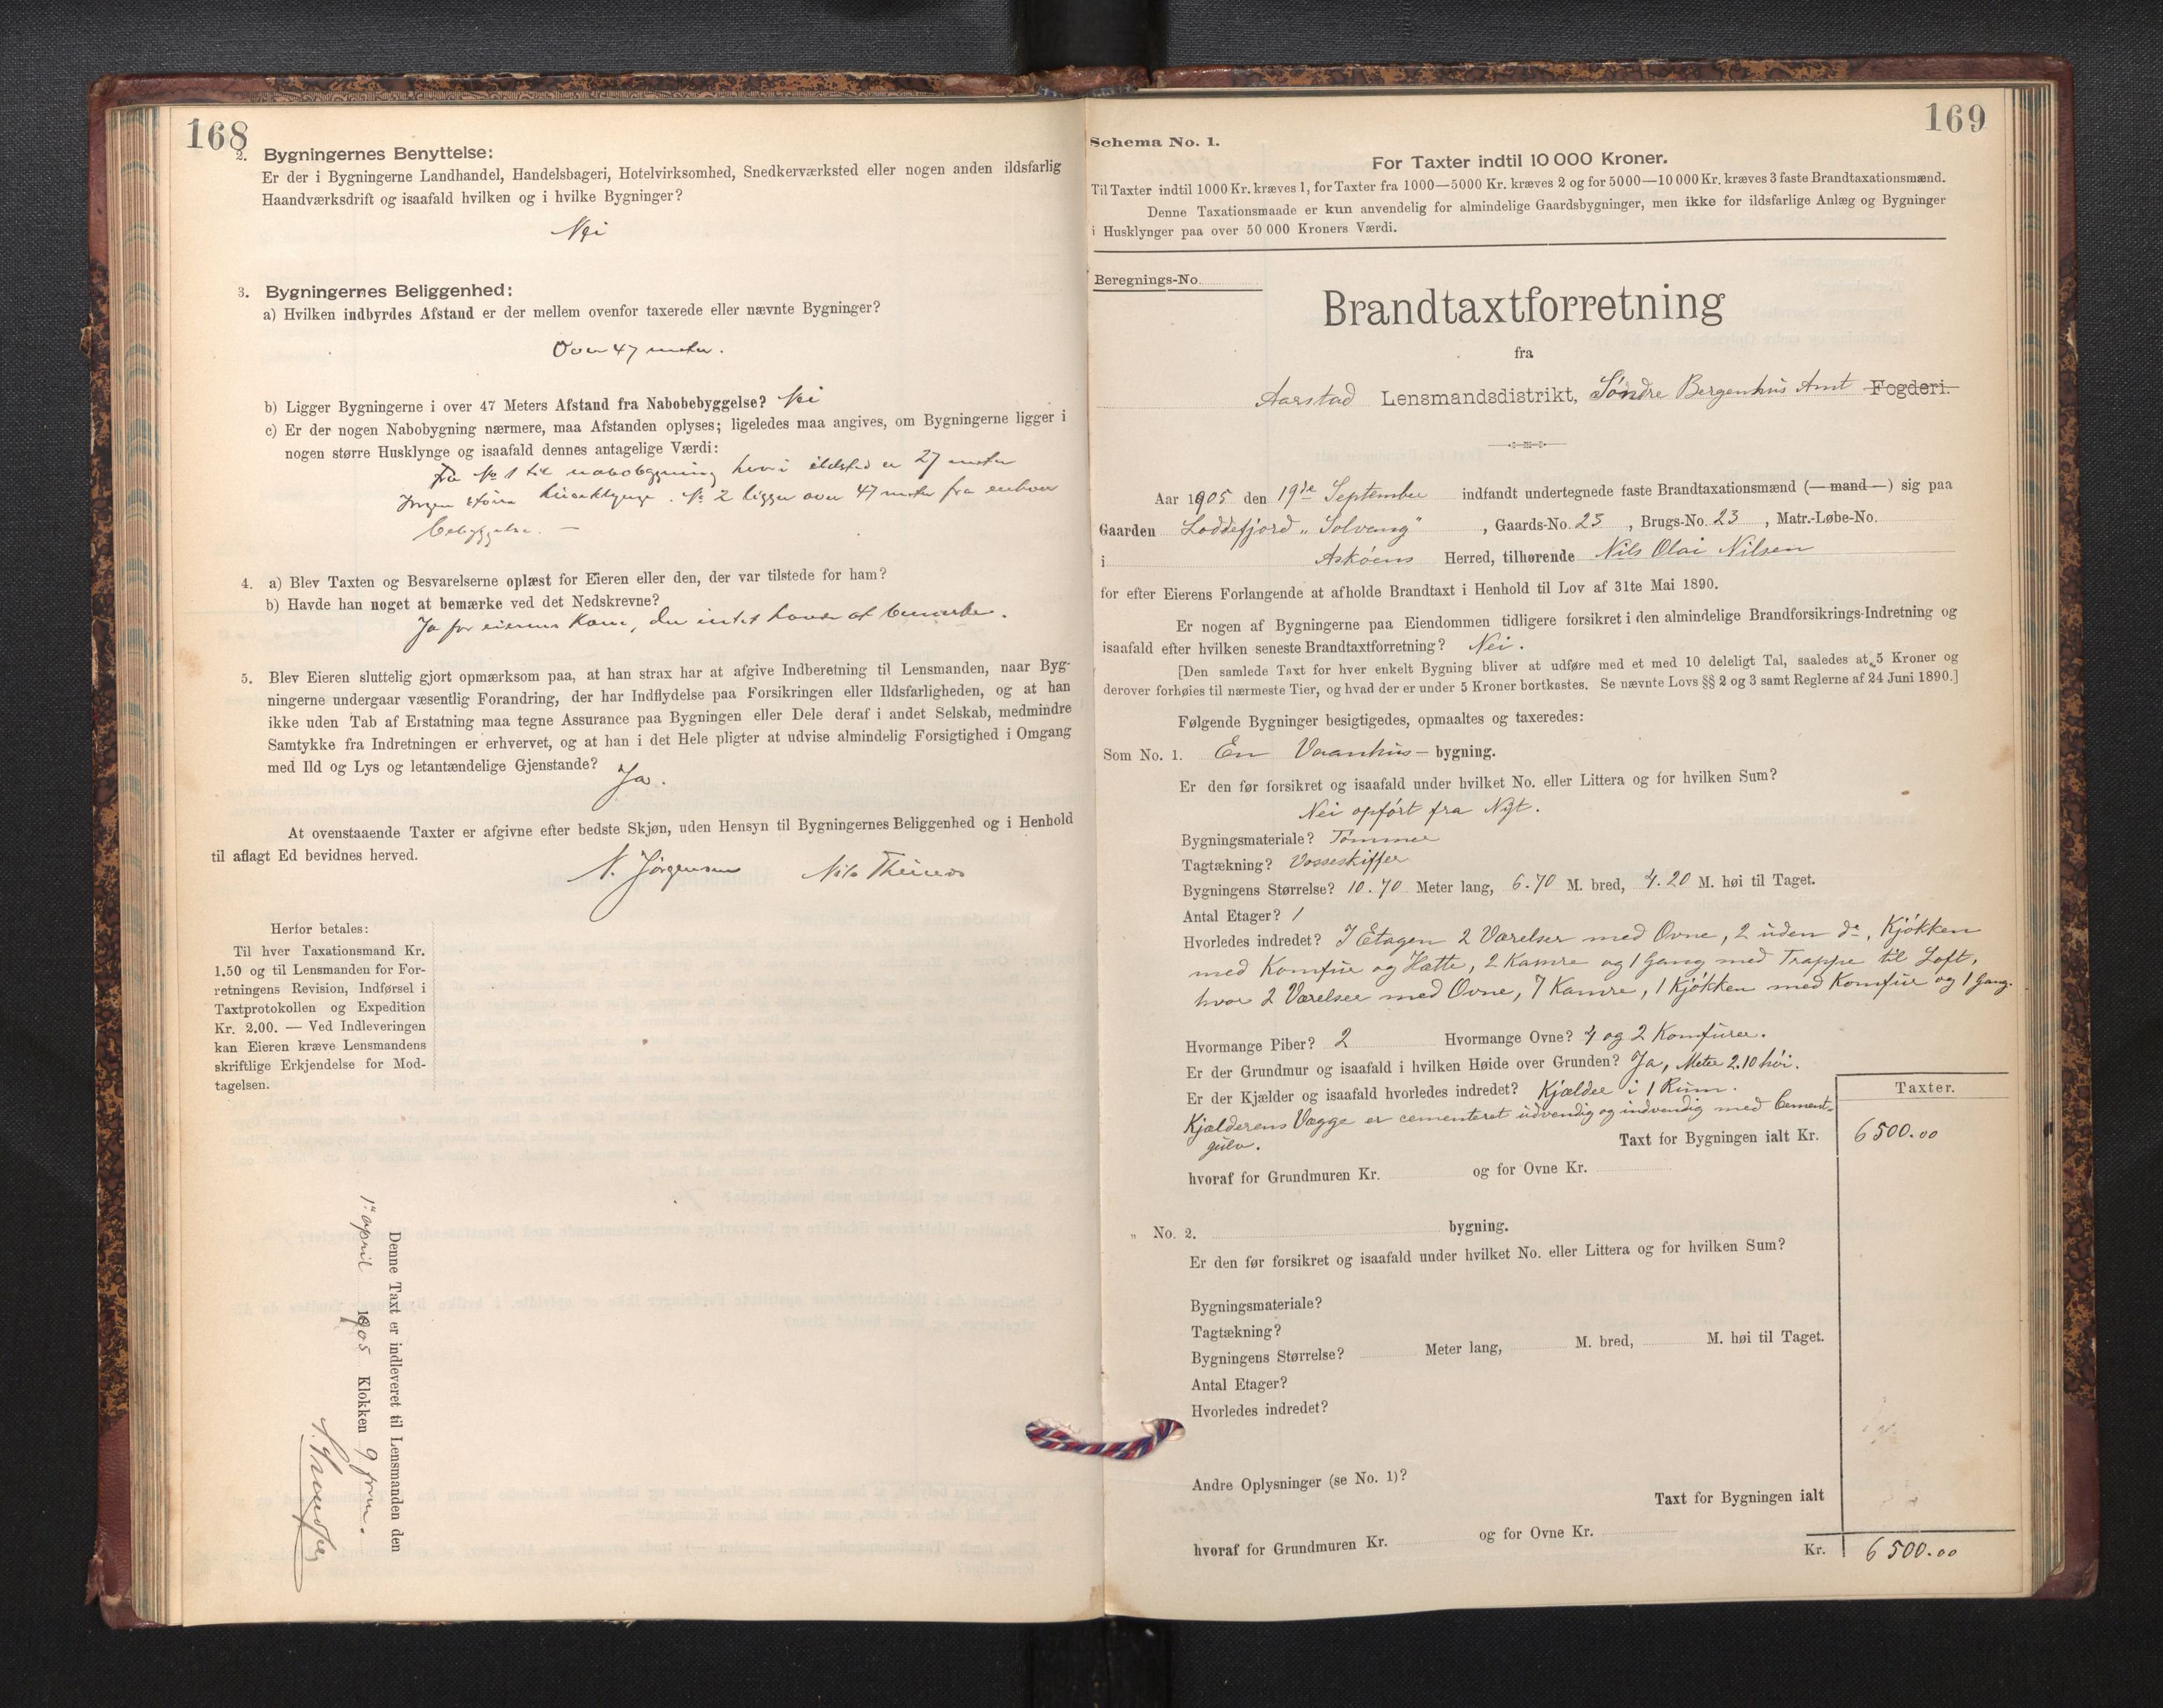 168
2. Bygningernes Benyttelse:
Er der i Bygningerne Landhandel, Handelsbageri, Hotelvirksomhed, Snedkerværksted eller nogen anden ildsfarlig
Haandværksdrift og isaafald hvilken og i hvilke Bygninger?
Nei
3. Bygningernes Beliggenhed:
a) Hvilken indbyrdes Afstand er der mellem ovenfor taxerede eller nævnte Bygninger?
Over 47 meter.
b) Ligger Bygningerne i over 47 Meters Afstand fra Nabobebyggelse? Nei
c) Er der nogen Nabobygning nærmere, maa Afstanden oplyses; ligeledes maa angives, om Bygningerne ligger i
nogen større Husklynge og isaafald dennes antagelige Værdi:
Fra No 1 til nabobygning hvori ildsted er 27 meter
Ingen større husklynge. No 2 ligger over 47 meter fra enhver
bebyggelse. —
4. a) Blev Taxten og Besvarelserne oplæst for Eieren eller den, der var tilstede for ham?
b) Havde han noget at bemærke ved det Nedskrevne?
Ja for eierens Kone, der intet havde at bemærke.
5. Blev Eieren sluttelig gjort opmærksom paa, at han strax har at afgive Indberetning til Lensmanden, naar Byg-
ningerne undergaar væsentlig Forandring, der har Indflydelse paa Forsikringen eller Ildsfarligheden, og at han
ikke uden Tab af Erstatning maa tegne Assurance paa Bygningen eller Dele deraf i andet Selskab, medmindre
Samtykke fra Indretningen er erhvervet, og at han i det Hele pligter at udvise almindelig Forsigtighed i Omgang
med Ild og Lys og letantændelige Gjenstande? Ja.
At ovenstaaende Taxter er afgivne efter bedste Skjøn, uden Hensyn til Bygningernes Beliggenhed og i Henhold
til aflagt Ed bevidnes herved.
N. Jørgensen Nils
Herfor betales:
Til hver Taxationsmand Kr.
1.50 og til Lensmanden for For-
retningens Revision, Indførsel i
Taxtprotokollen og Expedition
Kr. 2.00. — Ved Indleveringen
kan Eieren kræve Lensmandens
skriftlige Erkjendelse for Mod-
tagelsen.
Denne Taxt er indleveret til Lensmanden den
1ste april 1905 Klokken 9 form.
169
Schema No. 1.
For Taxter indtil 10 000 Kroner.
Til Taxter indtil 1000 Kr. kræves 1, for Taxter fra 1000—5000 Kr. kræves 2 og for 5000—10 000 Kr. kræves 3 faste Brandtaxationsmænd.
Denne Taxationsmaade er kun anvendelig for almindelige Gaardsbygninger, men ikke for ildsfarlige Anlæg og Bygninger
i Husklynger paa over 50 000 Kroners Værdi.
Beregnings-No.
Brandtaxtforretning
fra
Aarstad Lensmandsdistrikt, Søndre Bergenhus Amt Fogderi.
Aar 1905 den 19de September indfandt undertegnede faste Brandtaxationsmænd (—mand—) sig paa
Gaarden Loddefjord „Solvang" , Gaards-No. 23 , Brugs-No. 23 , Matr.-Løbe-No.
i Askøens Herred, tilhørende Nils Olai Nilsen
for efter Eierens Forlangende at afholde Brandtaxt i Henhold til Lov af 31te Mai 1890.
Er nogen af Bygningerne paa Eiendommen tidligere forsikret i den almindelige Brandforsikrings-Indretning og
isaafald efter hvilken seneste Brandtaxtforretning? Nei.
[Den samlede Taxt for hver enkelt Bygning bliver at udføre med et med 10 deleligt Tal, saaledes at 5 Kroner og
derover forhøies til nærmeste Tier, og hvad der er under 5 Kroner bortkastes. Se nævnte Lovs §§ 2 og 3 samt Reglerne af 24 Juni 1890.]
Følgende Bygninger besigtigedes, opmaaltes og taxeredes:
Som No. 1. En Vaanhus- bygning.
Er den før forsikret og isaafald under hvilket No. eller Littera og for hvilken Sum?
Nei opført fra Nyt.
Bygningsmateriale? Tømmer
Tagtækning? Vosseskiffer
Bygningens Størrelse? 10.70 Meter lang, 6.70 M. bred, 4.20 M. høi til Taget.
Antal Etager? 1
Hvorledes indredet? I Etagen 2 Værelser med Ovne, 2 uden do, Kjøkken
med Komfur og Hætte, 2 Kamre og 1 Gang med Trappe til Loft,
hvor 2 Værelser med Ovne, 7 Kamre, 1 Kjøkken med Komfur og 1 Gang.
Hvormange Piber? 2 Hvormange Ovne? 4 og 2 Komfurer.
Er der Grundmur og isaafald i hvilken Høide over Grunden? Ja, Meter 2.10 høi.
Er der Kjælder og isaafald hvorledes indredet? Kjælder i 1 Rum.
Kjælderens Vægge er cementeret udvendig og indvendig med Cement-
gulv.
Taxter.
Taxt for Bygningen ialt Kr. 6500.00
hvoraf for Grundmuren Kr. og for Ovne Kr.
„ No. 2. bygning.
Er den før forsikret og isaafald under hvilket No. eller Littera og for hvilken Sum?
Bygningsmateriale?
Tagtækning?
Bygningens Størrelse? Meter lang, M. bred, M. høi til Taget.
Antal Etager?
Hvorledes indredet?
Andre Oplysninger (se No. 1)?
Taxt for Bygningen ialt
hvoraf for Grundmuren Kr. og for Ovne Kr.
Kr. 6500.00